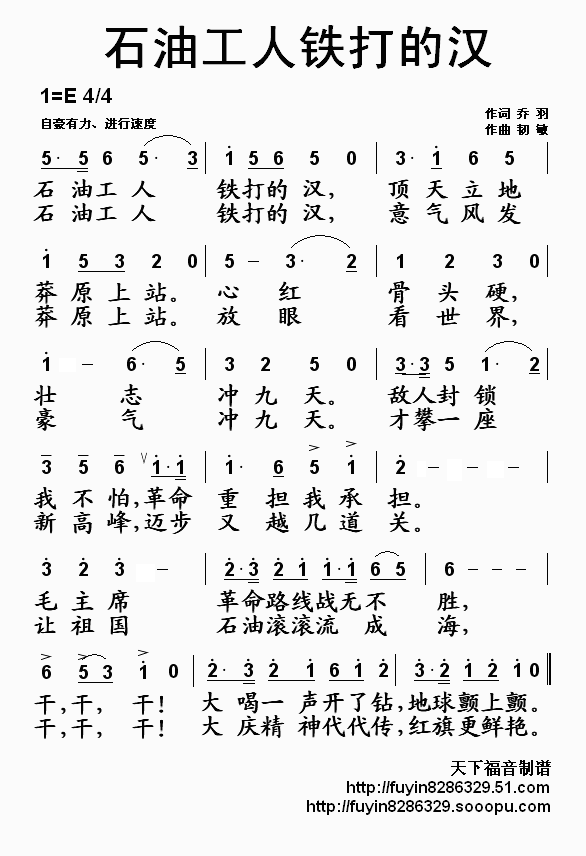 石油工人铁打的汉
1=E 4/4
自豪有力、进行速度
作词 乔 羽
作曲 韧 敏
5· 5 6 5· 3 | 1 5 6 5 0 | 3· 1 6 5
石 油 工 人 铁 打 的 汉, 顶 天 立 地
石 油 工 人 铁 打 的 汉, 意 气 风 发
1 5 3 2 0 | 5 – 3· 2 | 1 2 3 0
莽 原 上 站。 心 红 骨 头 硬,
莽 原 上 站。 放 眼 看 世 界,
1 – 6· 5 | 3 2 5 0 | 3·3 5 1· 2
壮 志 冲 九 天。 敌 人 封 锁
豪 气 冲 九 天。 才 攀 一 座
3 5 6 V 1·1 | 1· 6 5 1 | 2 – – –
我 不 怕, 革 命 重 担 我 承 担。
新 高 峰, 迈 步 又 越 几 道 关。
3 2 3 – | 2·3 2 1 1·1 6 5 | 6 – – –
毛 主 席 革 命 路 线 战 无 不 胜,
让 祖 国 石 油 滚 滚 流 成 海,
6 5 3 1 0 | 2· 2 3 1 2 | 3·2 1 2 1 0
干, 干, 干! 大 喝 一 声 开 了 钻, 地 球 颤 上 颤。
干, 干, 干! 大 庆 精 神 代 代 传, 红 旗 更 鲜 艳。
天下福音制谱
http://fuyin8286329.51.com/
http://fuyin8286329.sooopu.com/